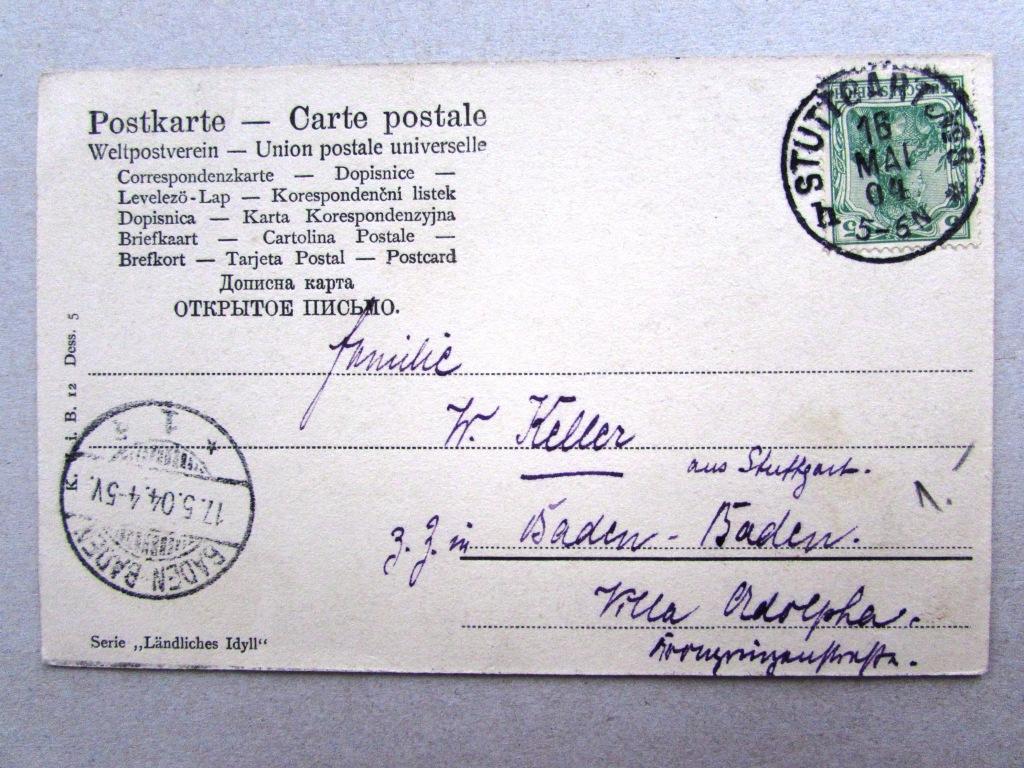 Postkarte — Carte postale
Weltpostverein — Union postale universelle
Correspondenzkarte — Dopisnice —
Levelező-Lap — Korespondenční listek
Dopisnica — Karta Korespondenzyjna
Briefkaart — Cartolina Postale —
Brefkort — Tarjeta Postal — Postcard
Дописна карта
ОТКРЫТОЕ ПИСЬМО.
STUTTGART No8
16
MAI
04
5-6N
h
5
Familie
W. Keller
aus Stuttgart.
1.
z. Z. in Baden-Baden.
Villa Adolpha.
Kronprinzenstraße.
K. i. B. 12 Dess. 5
BADEN-BADEN
17.5.04.4-5V.
1
Serie „Ländliches Idyll“